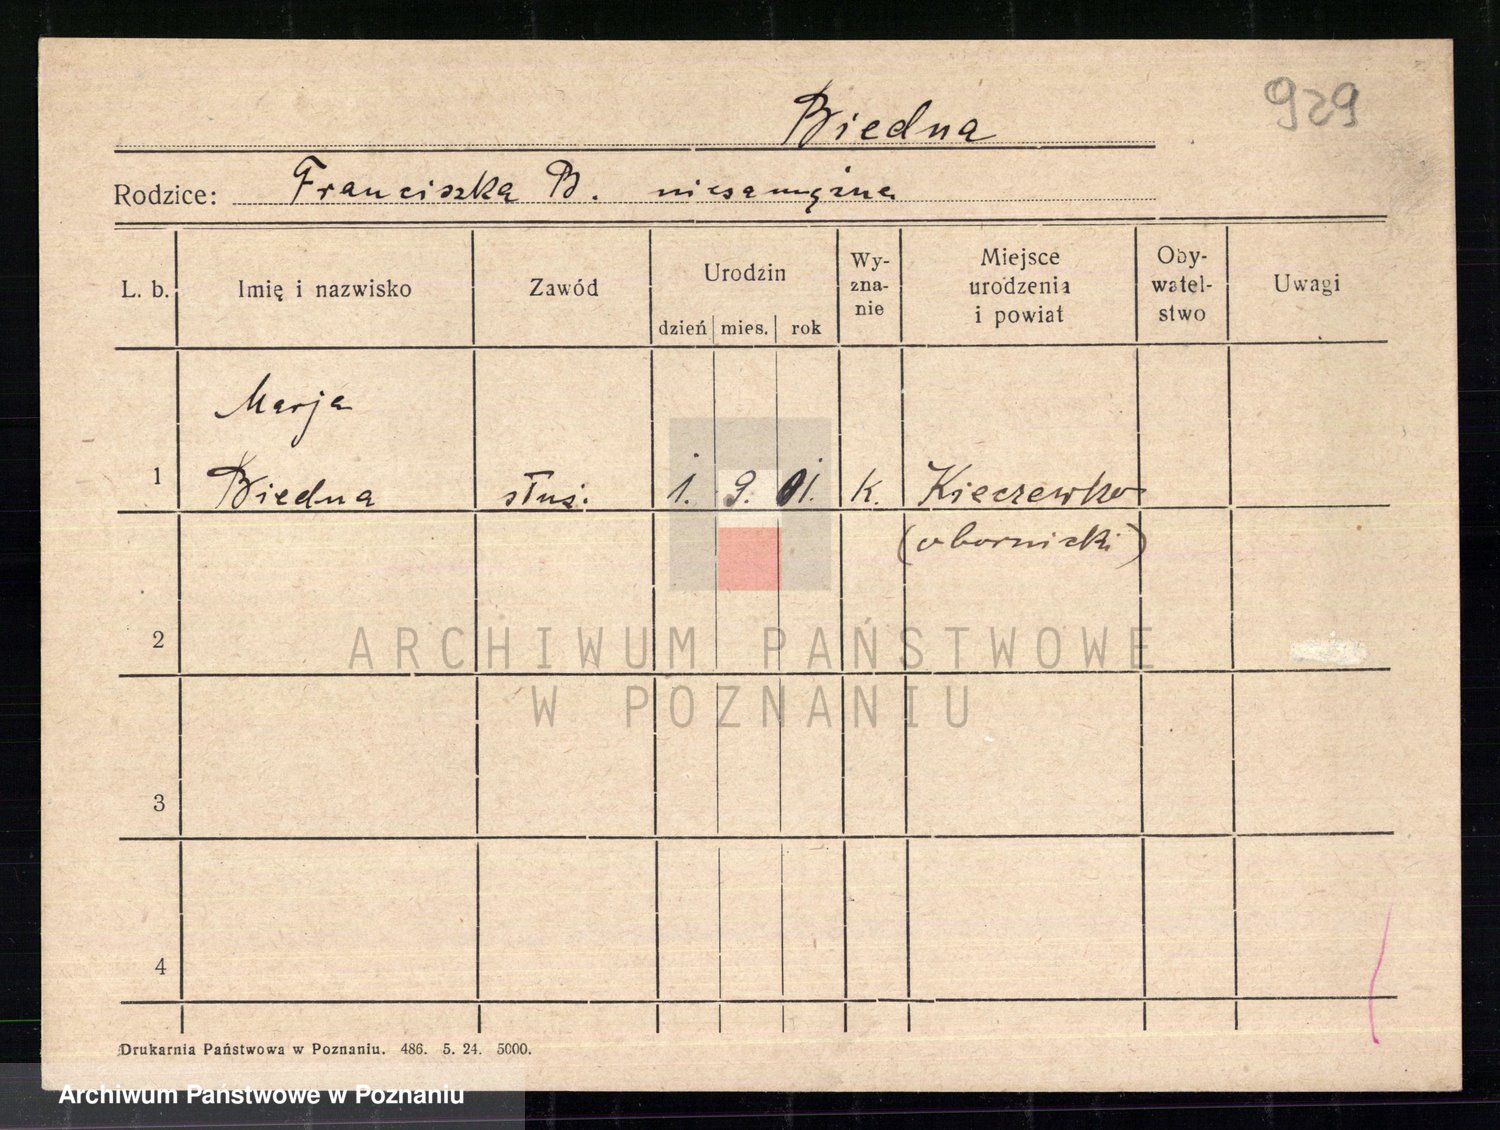 Biedna
929
Rodzice: Franciszka B. niezamężna
L. b.
Imię i nazwisko
Zawód
Urodzin
dzień mies. rok
Wy-
zna-
nie
Miejsce
urodzenia
i powiat
Oby-
watel-
stwo
Uwagi
Marja
1 Biedna służ. 1. 9. 01. k. Kieczewko
(obornicki)
2
3
4
Drukarnia Państwowa w Poznaniu. 486. 5. 24. 5000.
ARCHIWUM PAŃSTWOWE
W POZNANIU
Archiwum Państwowe w Poznaniu